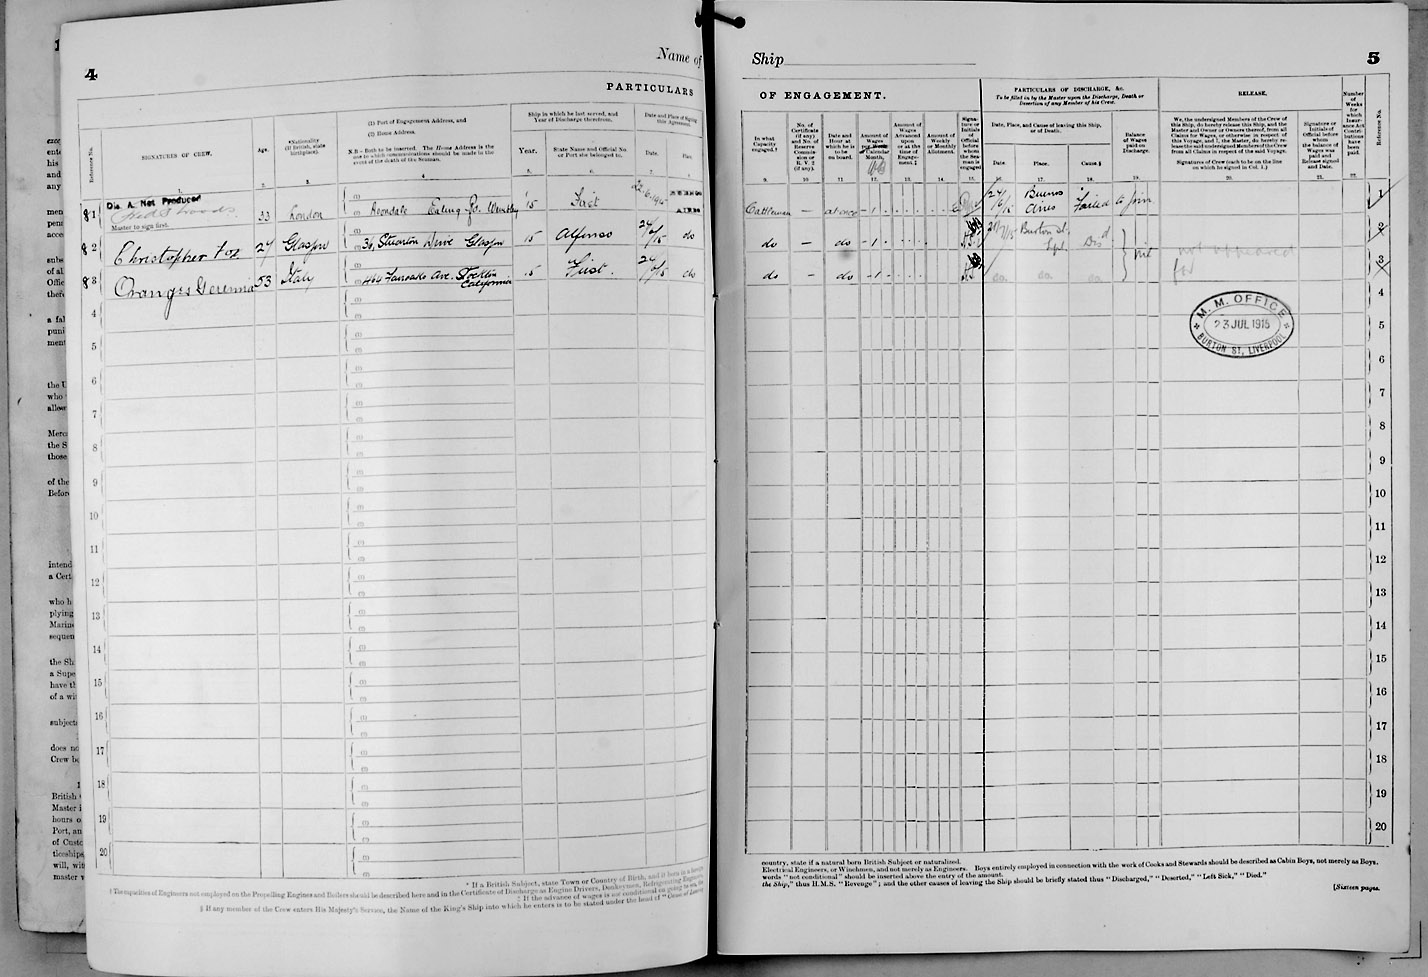 4
Name of
PARTICULARS
Reference No.
SIGNATURES OF CREW.
Age.
*Nationality
(If British, state
birthplace).
(1) Port of Engagement Address, and
(2) Home Address.
N.B – Both to be inserted. The Home Address is the
one to which communications should be made in the
event of the death of the Seaman.
Ship in which he last served, and
Year of Discharge therefrom.
Year.
State Name and Official No.
or Port she belonged to.
Date and Place of Signing
this Agreement.
Date.
Place.
1.
2.
3.
4
5.
6.
7.
8.
Dis. A. Not Produced
Master to sign first.
81
33
London
Avondale Ealing Rd. Wembley
15
First
22.6.1915
BUENOS
AIRES
82
Christopher Fox
27
Glasgow
36, Stuarton Drive Glasgow
15
Alfonso
24/6/15
do
83
53
Italy
Ave. Stockton
California
15
First.
24/6/15
do
4
5
6
7
8
9
10
11
12
13
14
15
16
17
18
19
20
* If a British Subject, state Town or Country of Birth, and if born in a
† The capacities of Engineers not employed on the Propelling Engines and Boilers should be described here and in the Certificate of Discharge as Engine Drivers, Donkeymen, Refrigerating
‡ If the advance of wages is not conditional on going to sea, the
§ If any member of the Crew enters His Majesty's Service, the Name of the King's Ship into which he enters is to be stated under the head of "Cause of Leaving
Ship
5
OF ENGAGEMENT.
PARTICULARS OF DISCHARGE, &c.
To be filled in by the Master upon the Discharge, Death or
Desertion of any Member of his Crew.
RELEASE.
In what
Capacity
engaged.†
No. of
Certificate
(if any)
and No. of
Reserve
Commis-
sion or
R. V. 2
(if any).
Date and
Hour at
which he is
to be
on board.
Amount of
Wages
per Week or
Calendar
Month.
Amount of
Wages
Advanced
upon
or at the
time of
Engage-
ment.‡
Amount of
Weekly
or Monthly
Allotment.
Signa-
ture or
Initials
of
Official
before
whom
the Sea-
man is
engaged
Date, Place, and Cause of leaving this Ship,
or of Death.
Date.
Place.
Cause.§
Balance
of Wages
paid on
Discharge.
We, the undersigned Members of the Crew of
this Ship, do hereby release this Ship, and the
Master and Owner or Owners thereof, from all
Claims for Wages, or otherwise, in respect of
this Voyage, and I, the Master, do hereby re-
lease the said undersigned Members of the Crew
from all Claims in respect of the said Voyage.
Signatures of Crew (each to be on the line
on which he signed in Col. 1.)
Signature or
Initials of
Official before
whom
the balance of
Wages was
paid and
Release signed
and Date.
Number
of
Weeks
for
which
Insur-
ance Act
Contri-
butions
have
been
paid.
Reference No.
9.
10
11
12.
13.
14.
15.
16.
17.
18.
19.
20.
21.
22.
Cattleman – at once – 1
24/6/15
Buenos
Aires
Failed to join
1
do – do – 1
Burton St.
Lpl.
Disd
nil
not appeared
2
do – do – 1
do. do. do.
for
3
M. M. OFFICE
23 JUL 1915
BURTON ST, LIVERPOOL
4
5
6
7
8
9
10
11
12
13
14
15
16
17
18
19
20
country, state if a natural born British Subject or naturalized.
Electrical Engineers, or Winchmen, and not merely as Engineers. Boys entirely employed in connection with the work of Cooks and Stewards should be described as Cabin Boys, not merely as Boys.
words "not conditional" should be inserted above the entry of the amount.
the Ship," thus H.M.S. "Revenge"; and the other causes of leaving the Ship should be briefly stated thus "Discharged," "Deserted," "Left Sick," "Died."
[Sixteen pages.